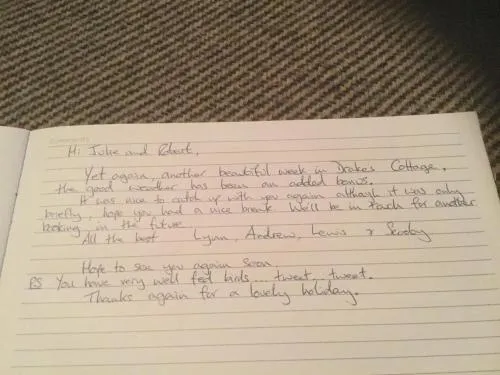 Comments
Hi Julie and Robert,
Yet again, another beautiful week in Drakes Cottage,
the good weather has been an added bonus.
It was nice to catch up with you again although it was only
briefly, hope you had a nice break. We'll be in touch for another
booking in the future.
All the best Lynn, Andrew, Lewis & Scooby
Hope to see you again soon
PS You have very well fed birds... tweet... tweet.
Thanks again for a lovely holiday.